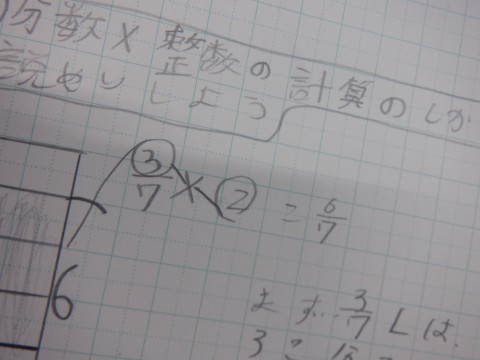 分数×整数の計算のしか
説めいしよう
3/7×2=6/7
6
まず、3/7Lは、
3こ